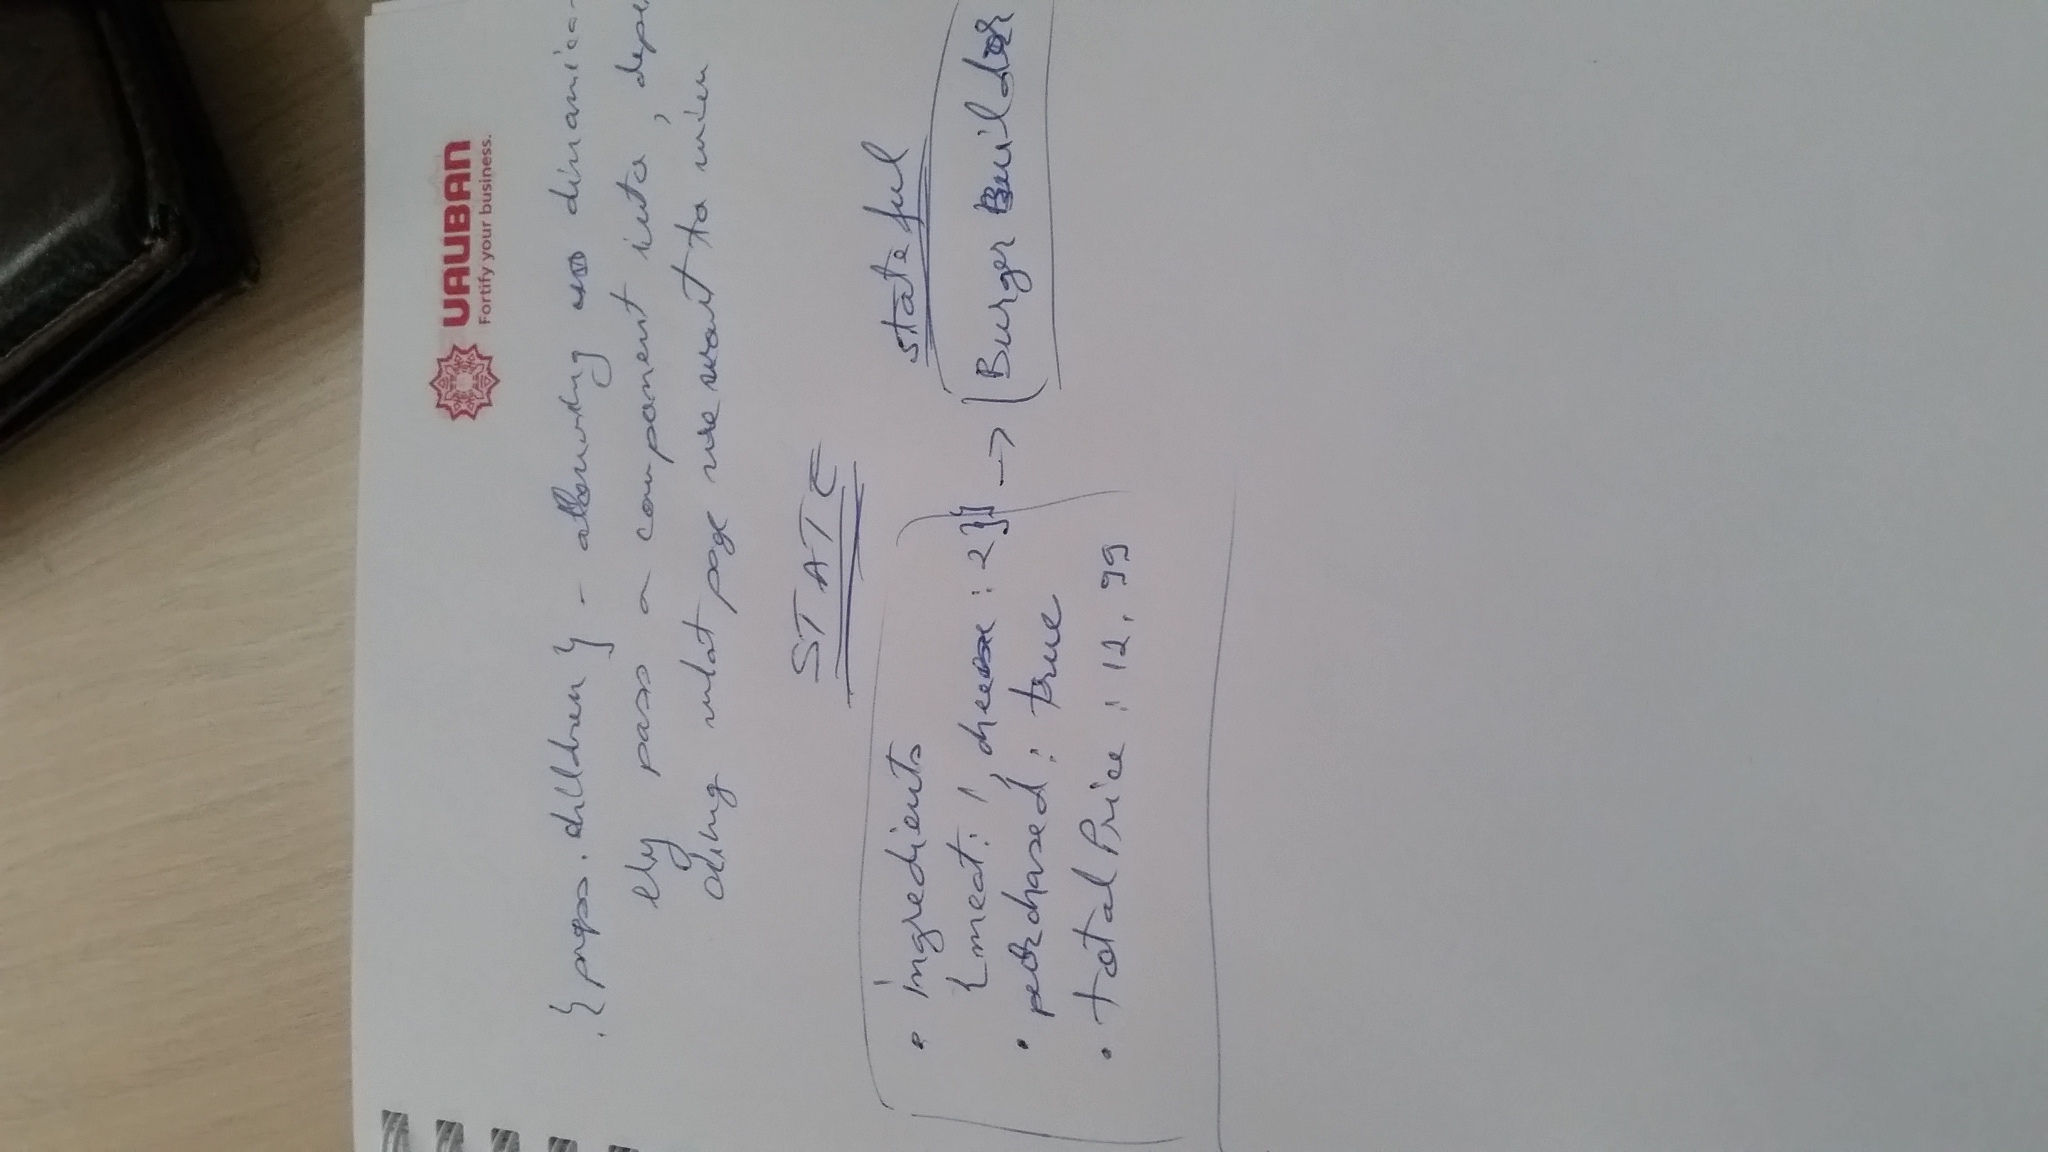 VAUBAN
Fortify your business.
. { props.children } - allowing us dinamica-
lly pass a component into, depe
ding what page we want to view
STATE
• ingredients
{meat: 1, cheese : 2}}
• purchased : true
• total Price : 12, 99
→
stateful
Burger Builder